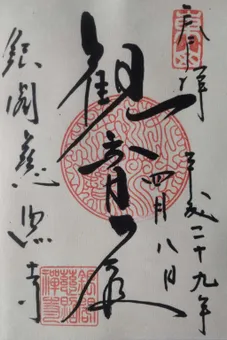 奉拝
平成二十九年
四月八日
観音殿
銀閣慈照寺